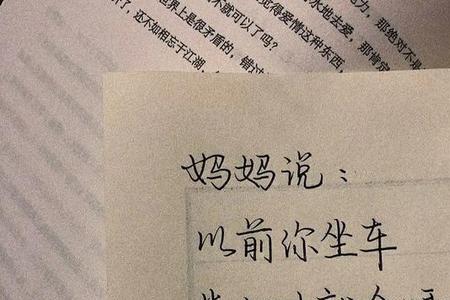 力，那绝对不是
水地去爱，那肯定
觉得爱情这种东西，
不就可以了吗？
世界上是很矛盾的，错过
了，还不如相忘于江湖，
妈妈说：
以前你坐车